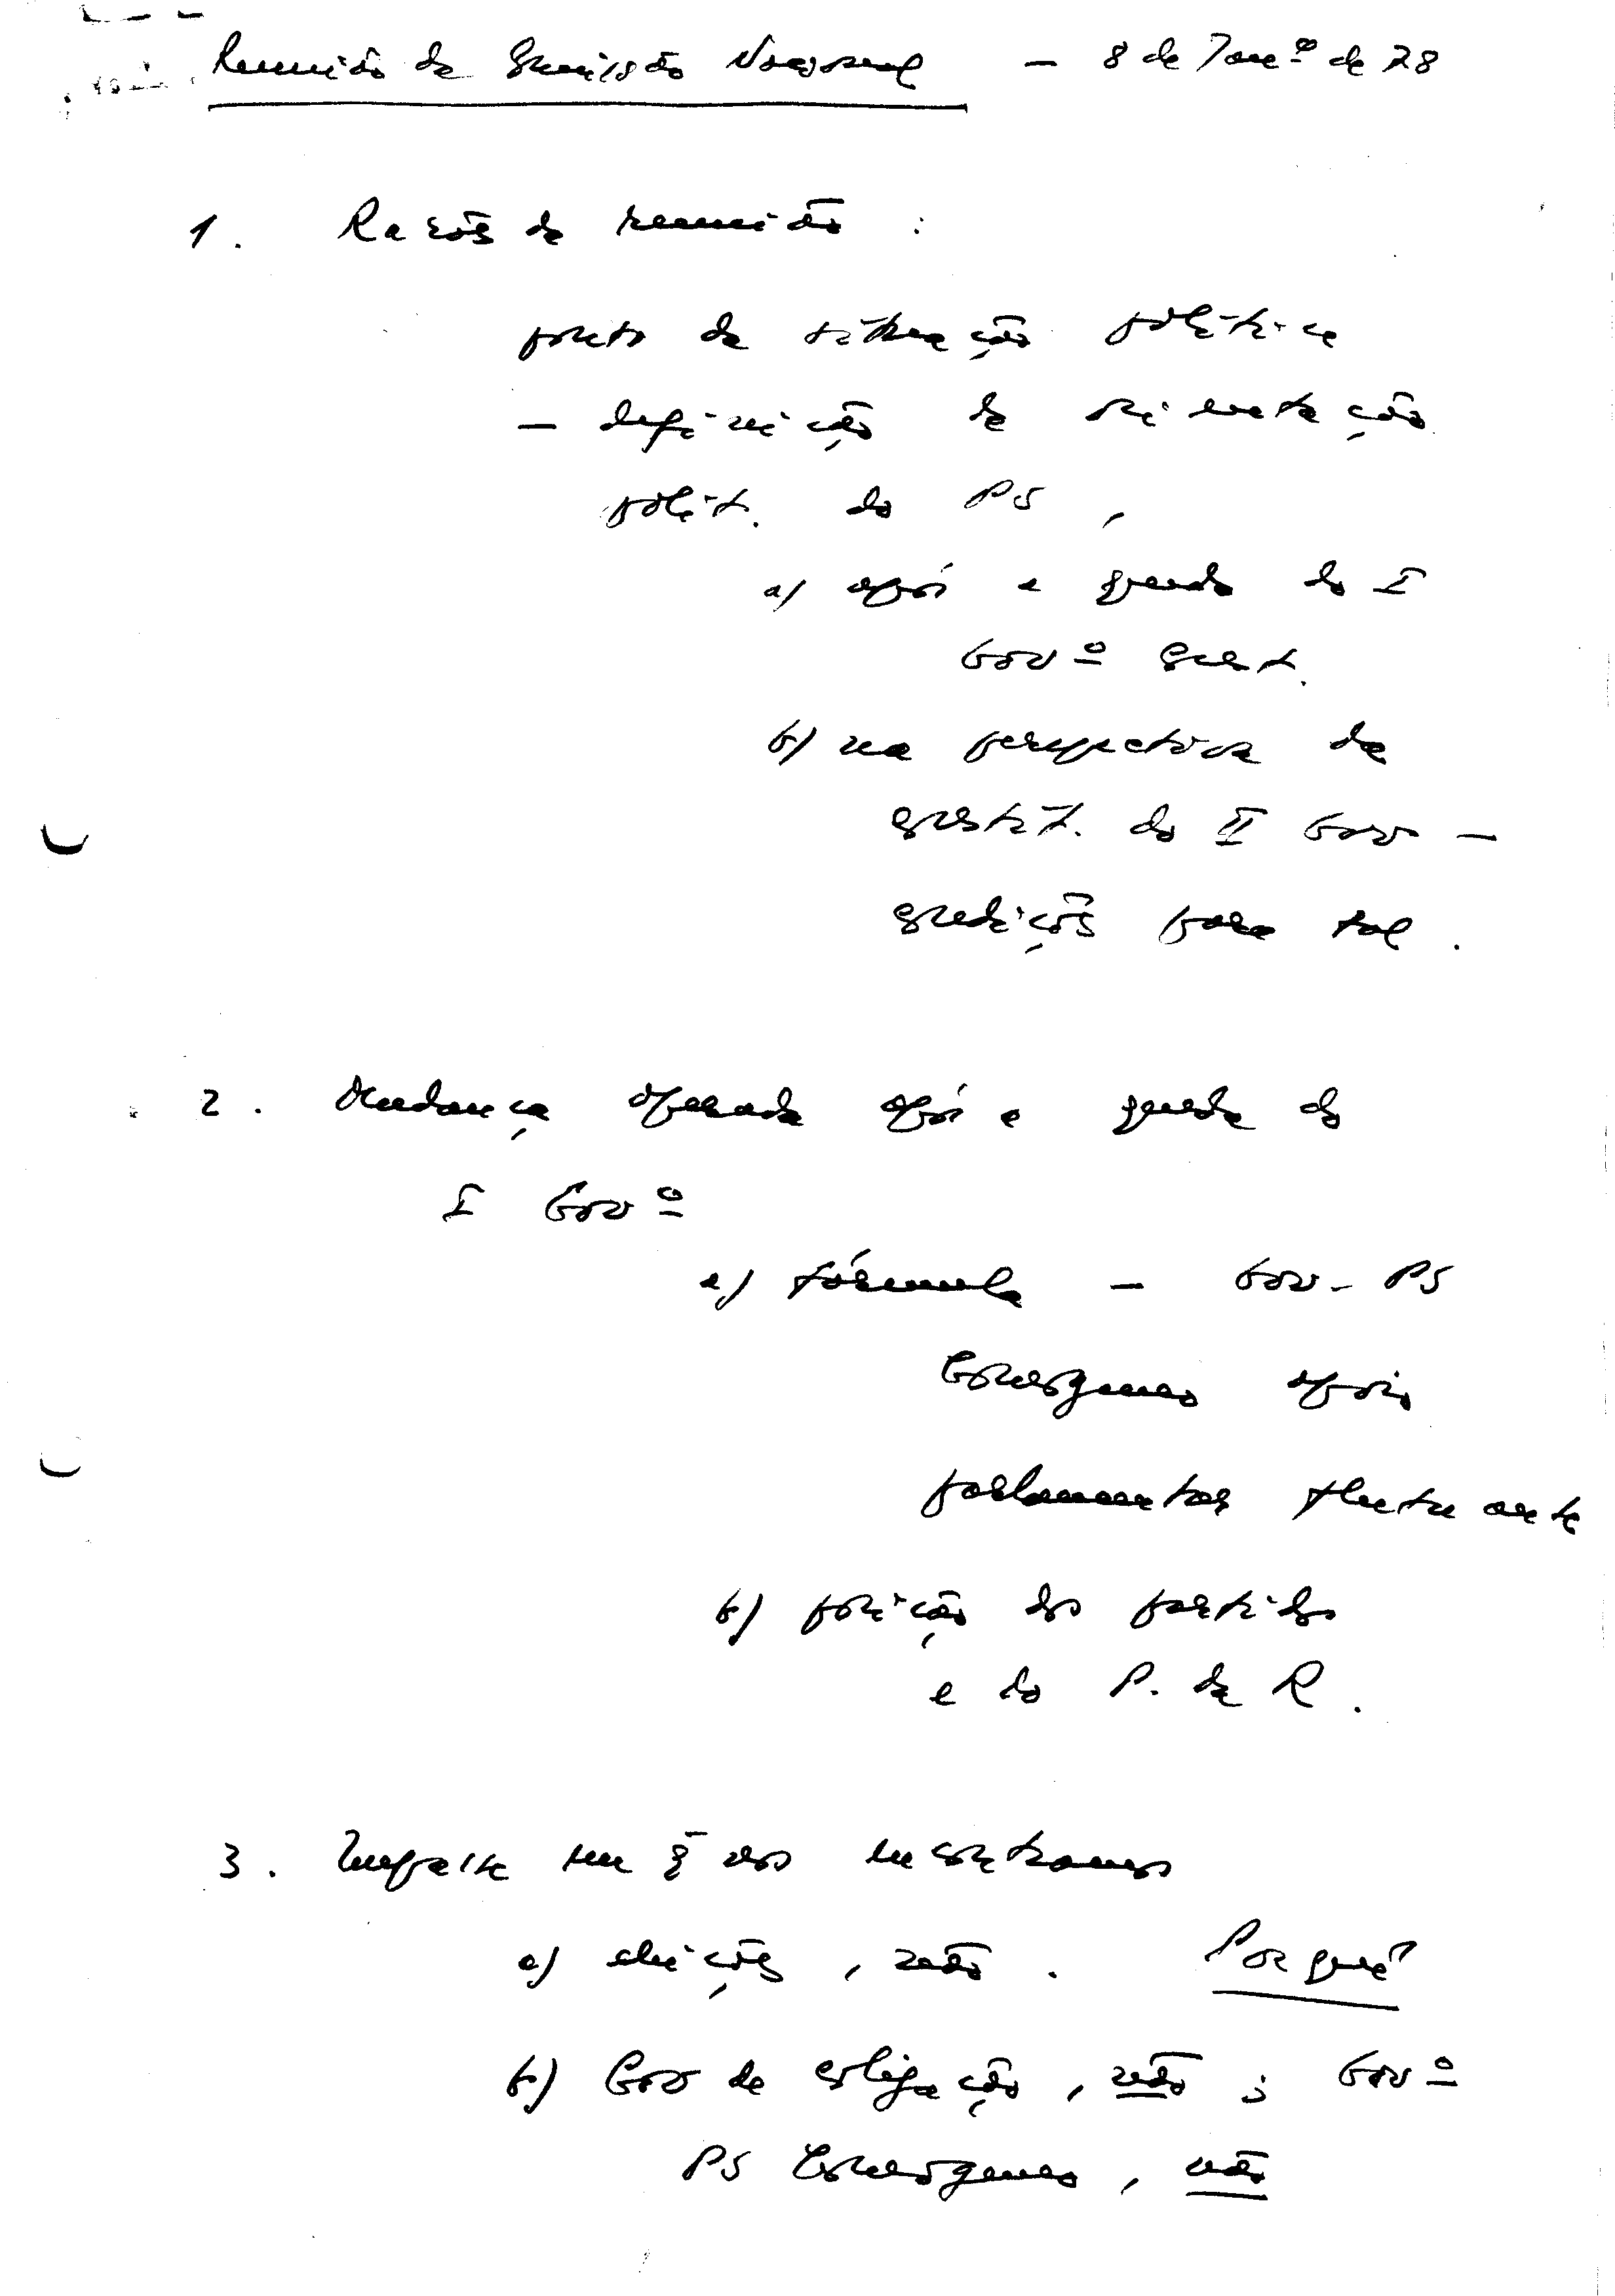 Reunião da Comissão Nacional — 8 de Janº de 78
1. Razões da reunião :
ponto da situação política
— definição da orientação
polít. do PS,
a) após a queda do I
Govº Const.
b) na perspectiva da
constit. do II Gov —
condições para tal.
2. Mudança operada após a queda do
I Govº
a) fórmula — Gov- PS
homogéneo apoio
parlamentar flutuante
b) posição dos partidos
e do P. da R.
3. Impasse em q̃ nos encontramos
a) eleições, não. Porquê?
b) Gov de coligação, não ; Govº
PS homogéneo, não